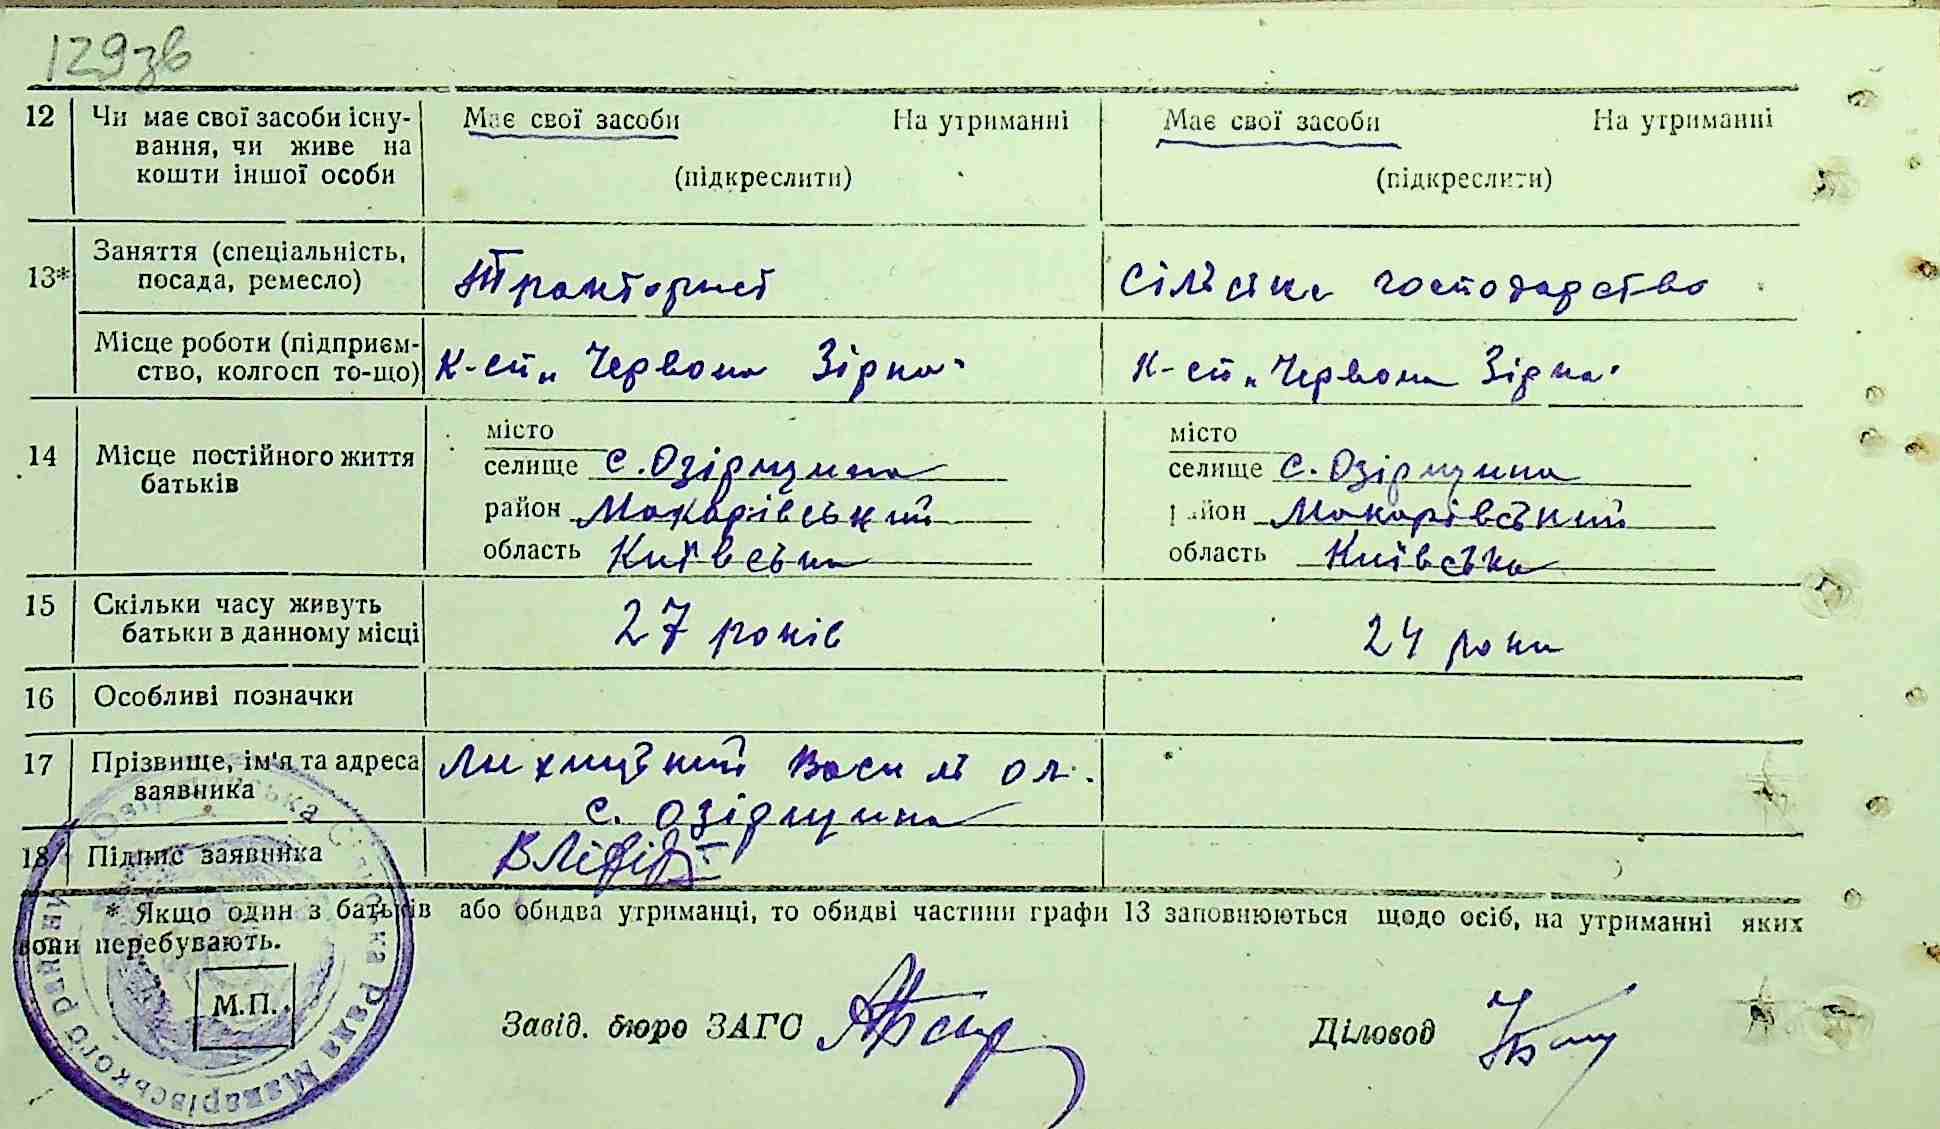 129зв
12 Чи має свої засоби існу-
вання, чи живе на
кошти іншої особи
Має свої засоби На утриманні
(підкреслити)
Має свої засоби На утриманні
(підкреслити)
13* Заняття (спеціальність,
посада, ремесло)
Тракторист
Сільське господарство
Місце роботи (підприєм-
ство, колгосп то-що)
К-сп „Червона Зірка"
К-сп „Червона Зірка"
14 Місце постійного життя
батьків
місто
селище с. Озірщина
район Макарівський
область Київська
місто
селище с. Озірщина
район Макарівський
область Київська
15 Скільки часу живуть
батьки в данному місці
27 років
24 роки
16 Особливі позначки
17 Прізвище, ім'я та адреса
заявника
Василь Ол.
с. Озірщина
18 Підпис заявника
* Якщо один з батьків або обидва утриманці, то обидві частини графи 13 заповнюються щодо осіб, на утриманні яких
вони перебувають.
М.П.
Завід. бюро ЗАГС
Діловод
Рада Макарівського